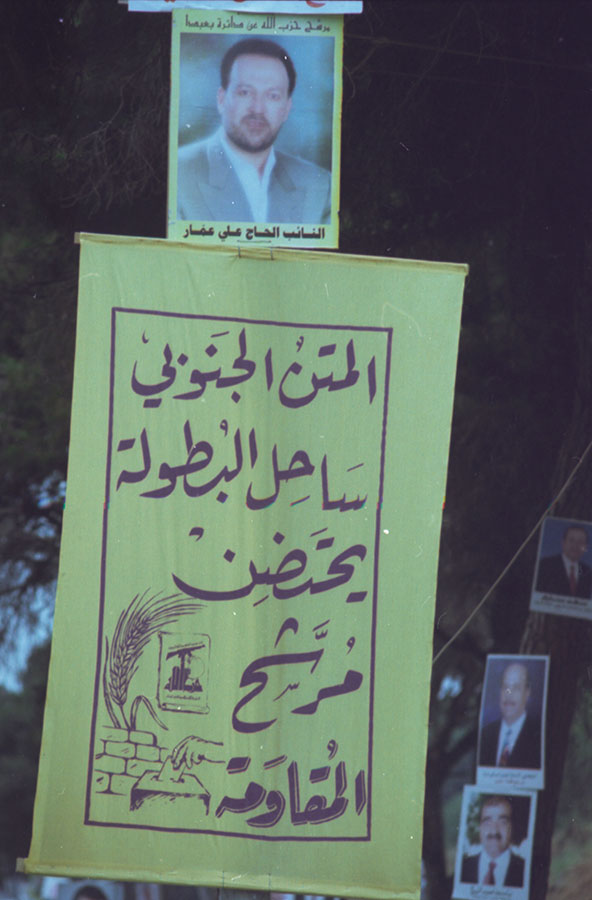 مرشح حزب الله عن دائرة بعبدا
النائب الحاج علي عمّار
المتنُ الجَنوبي
سَاحِل البُطولة
يحتَضِن
مُرشَّح
المُقاوَمَة